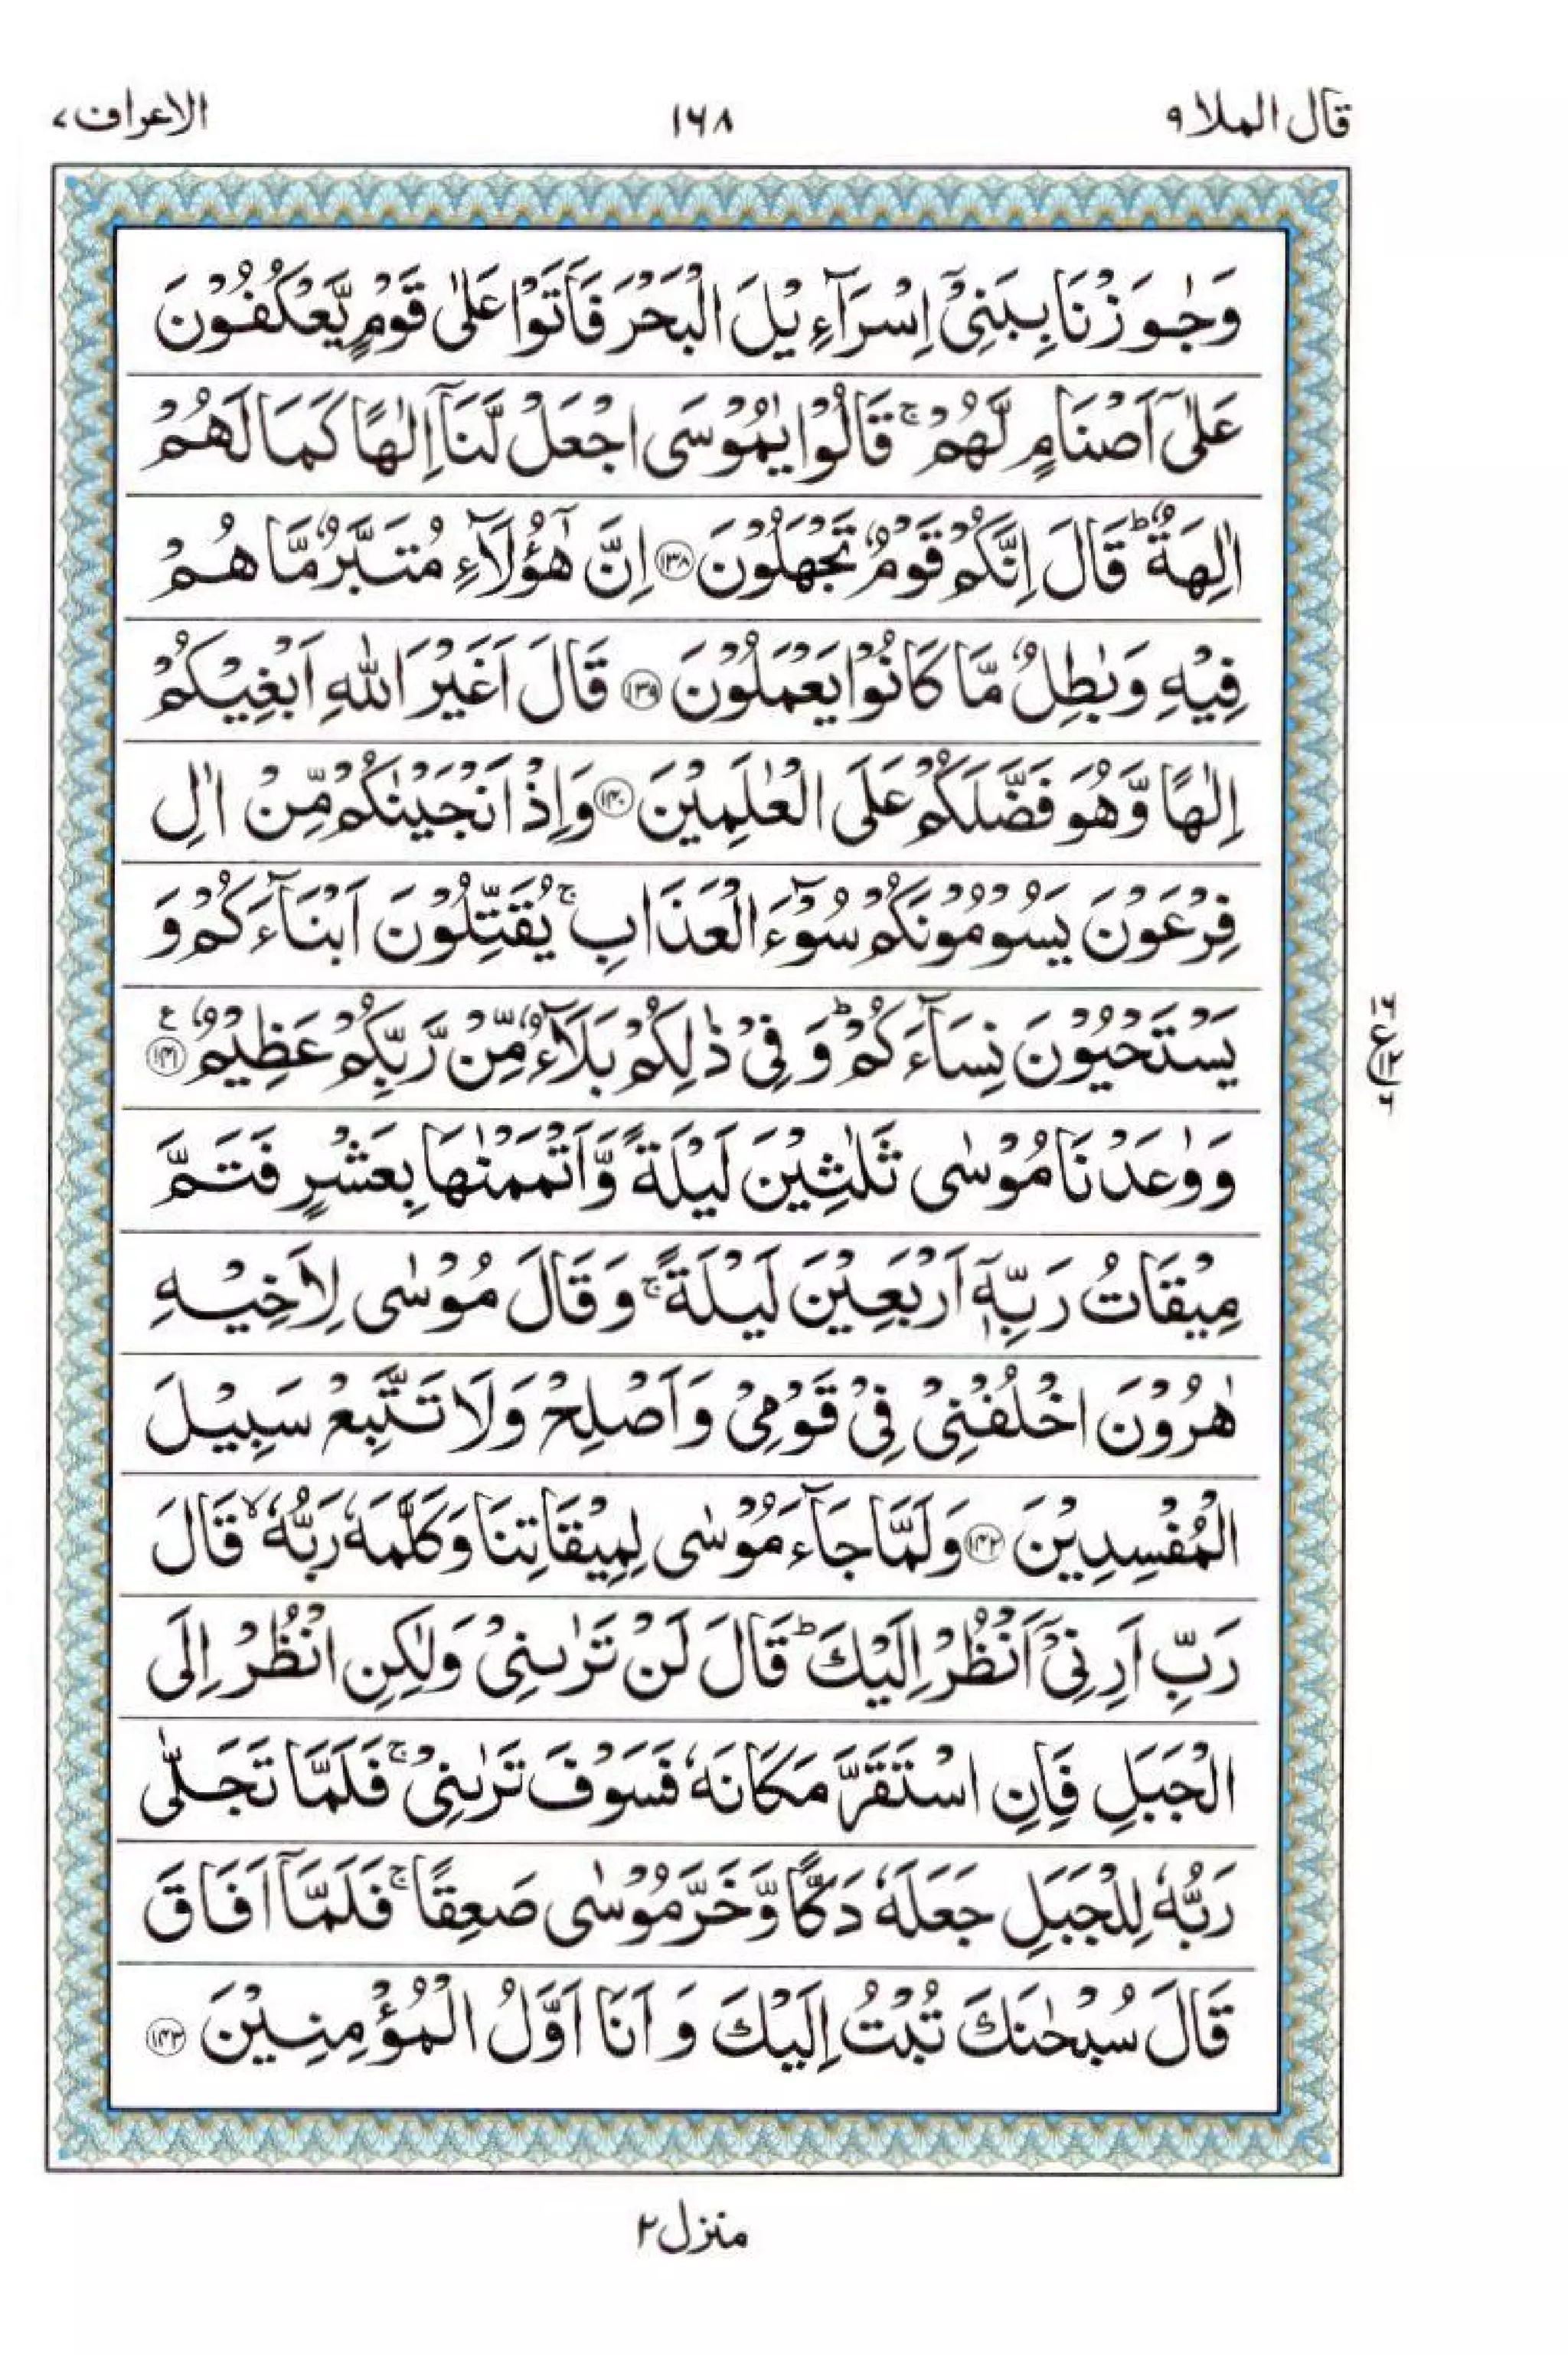 قال الملا ٩ ١٦٨ الاعراف ٧
وَجٰوَزْنَا بِبَنِیْۤ اِسْرَآءِیْلَ الْبَحْرَ فَاَتَوْا عَلٰی قَوْمٍ یَّعْكُفُوْنَ
عَلٰۤی اَصْنَامٍ لَّهُمْ ۚ قَالُوْا یٰمُوْسَی اجْعَلْ لَّنَاۤ اِلٰهًا كَمَا لَهُمْ
اٰلِهَةٌ ؕ قَالَ اِنَّكُمْ قَوْمٌ تَجْهَلُوْنَ ۝١٣٨ اِنَّ هٰۤؤُلَآءِ مُتَبَّرٌ مَّا هُمْ
فِیْهِ وَبٰطِلٌ مَّا كَانُوْا یَعْمَلُوْنَ ۝١٣٩ قَالَ اَغَیْرَ اللّٰهِ اَبْغِیْكُمْ
اِلٰهًا وَّهُوَ فَضَّلَكُمْ عَلَی الْعٰلَمِیْنَ ۝١٤٠ وَاِذْ اَنْجَیْنٰكُمْ مِّنْ اٰلِ
فِرْعَوْنَ یَسُوْمُوْنَكُمْ سُوْٓءَ الْعَذَابِ ۚ یُقَتِّلُوْنَ اَبْنَآءَكُمْ وَ
یَسْتَحْیُوْنَ نِسَآءَكُمْ ؕ وَ فِیْ ذٰلِكُمْ بَلَآءٌ مِّنْ رَّبِّكُمْ عَظِیْمٌ ۝١٤١ ع
وَوٰعَدْنَا مُوْسٰی ثَلٰثِیْنَ لَیْلَةً وَّاَتْمَمْنٰهَا بِعَشْرٍ فَتَمَّ
مِیْقَاتُ رَبِّهٖۤ اَرْبَعِیْنَ لَیْلَةً ۚ وَقَالَ مُوْسٰی لِاَخِیْهِ
هٰرُوْنَ اخْلُفْنِیْ فِیْ قَوْمِیْ وَاَصْلِحْ وَلَا تَتَّبِعْ سَبِیْلَ
الْمُفْسِدِیْنَ ۝١٤٢ وَلَمَّا جَآءَ مُوْسٰی لِمِیْقَاتِنَا وَكَلَّمَهٗ رَبُّهٗ ۙ قَالَ
رَبِّ اَرِنِیْۤ اَنْظُرْ اِلَیْكَ ؕ قَالَ لَنْ تَرٰىنِیْ وَلٰكِنِ انْظُرْ اِلَی
الْجَبَلِ فَاِنِ اسْتَقَرَّ مَكَانَهٗ فَسَوْفَ تَرٰىنِیْ ۚ فَلَمَّا تَجَلّٰی
رَبُّهٗ لِلْجَبَلِ جَعَلَهٗ دَكًّا وَّخَرَّ مُوْسٰی صَعِقًا ۚ فَلَمَّاۤ اَفَاقَ
قَالَ سُبْحٰنَكَ تُبْتُ اِلَیْكَ وَ اَنَا اَوَّلُ الْمُؤْمِنِیْنَ ۝١٤٣
منزل ٢